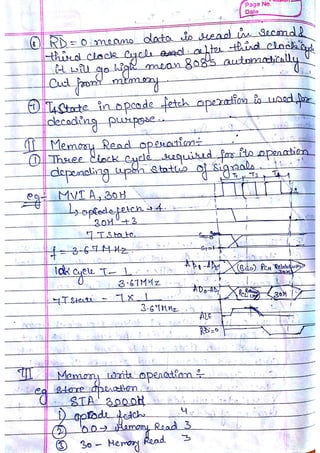 Page No.
Date
⑥ RD=0 means data is read in second &
third clock cycle and after third clock cycle
it will go high mean 8085 automatically
Cut from memory
⑦ T4 State in opcode fetch operation is used for
decoding purpose..
II Memory Read operation:-
① Three clock cycle required for its operation
depending upon status of signals.
eg:- MVI A, 30H
↳ opcode fetch → 4
30H → 3
7 T State
f = 3.67 MHz
1 clk cycle T = 1
3.67MHz
7 T State = 7 x 1
3.67MHz
ALE
RD=0
30H
III Memory write operation:-
eg Store operation
STA 3000H
① opcode fetch 4
② 00 → Memory Read 3
③ 30 - Memory Read 3